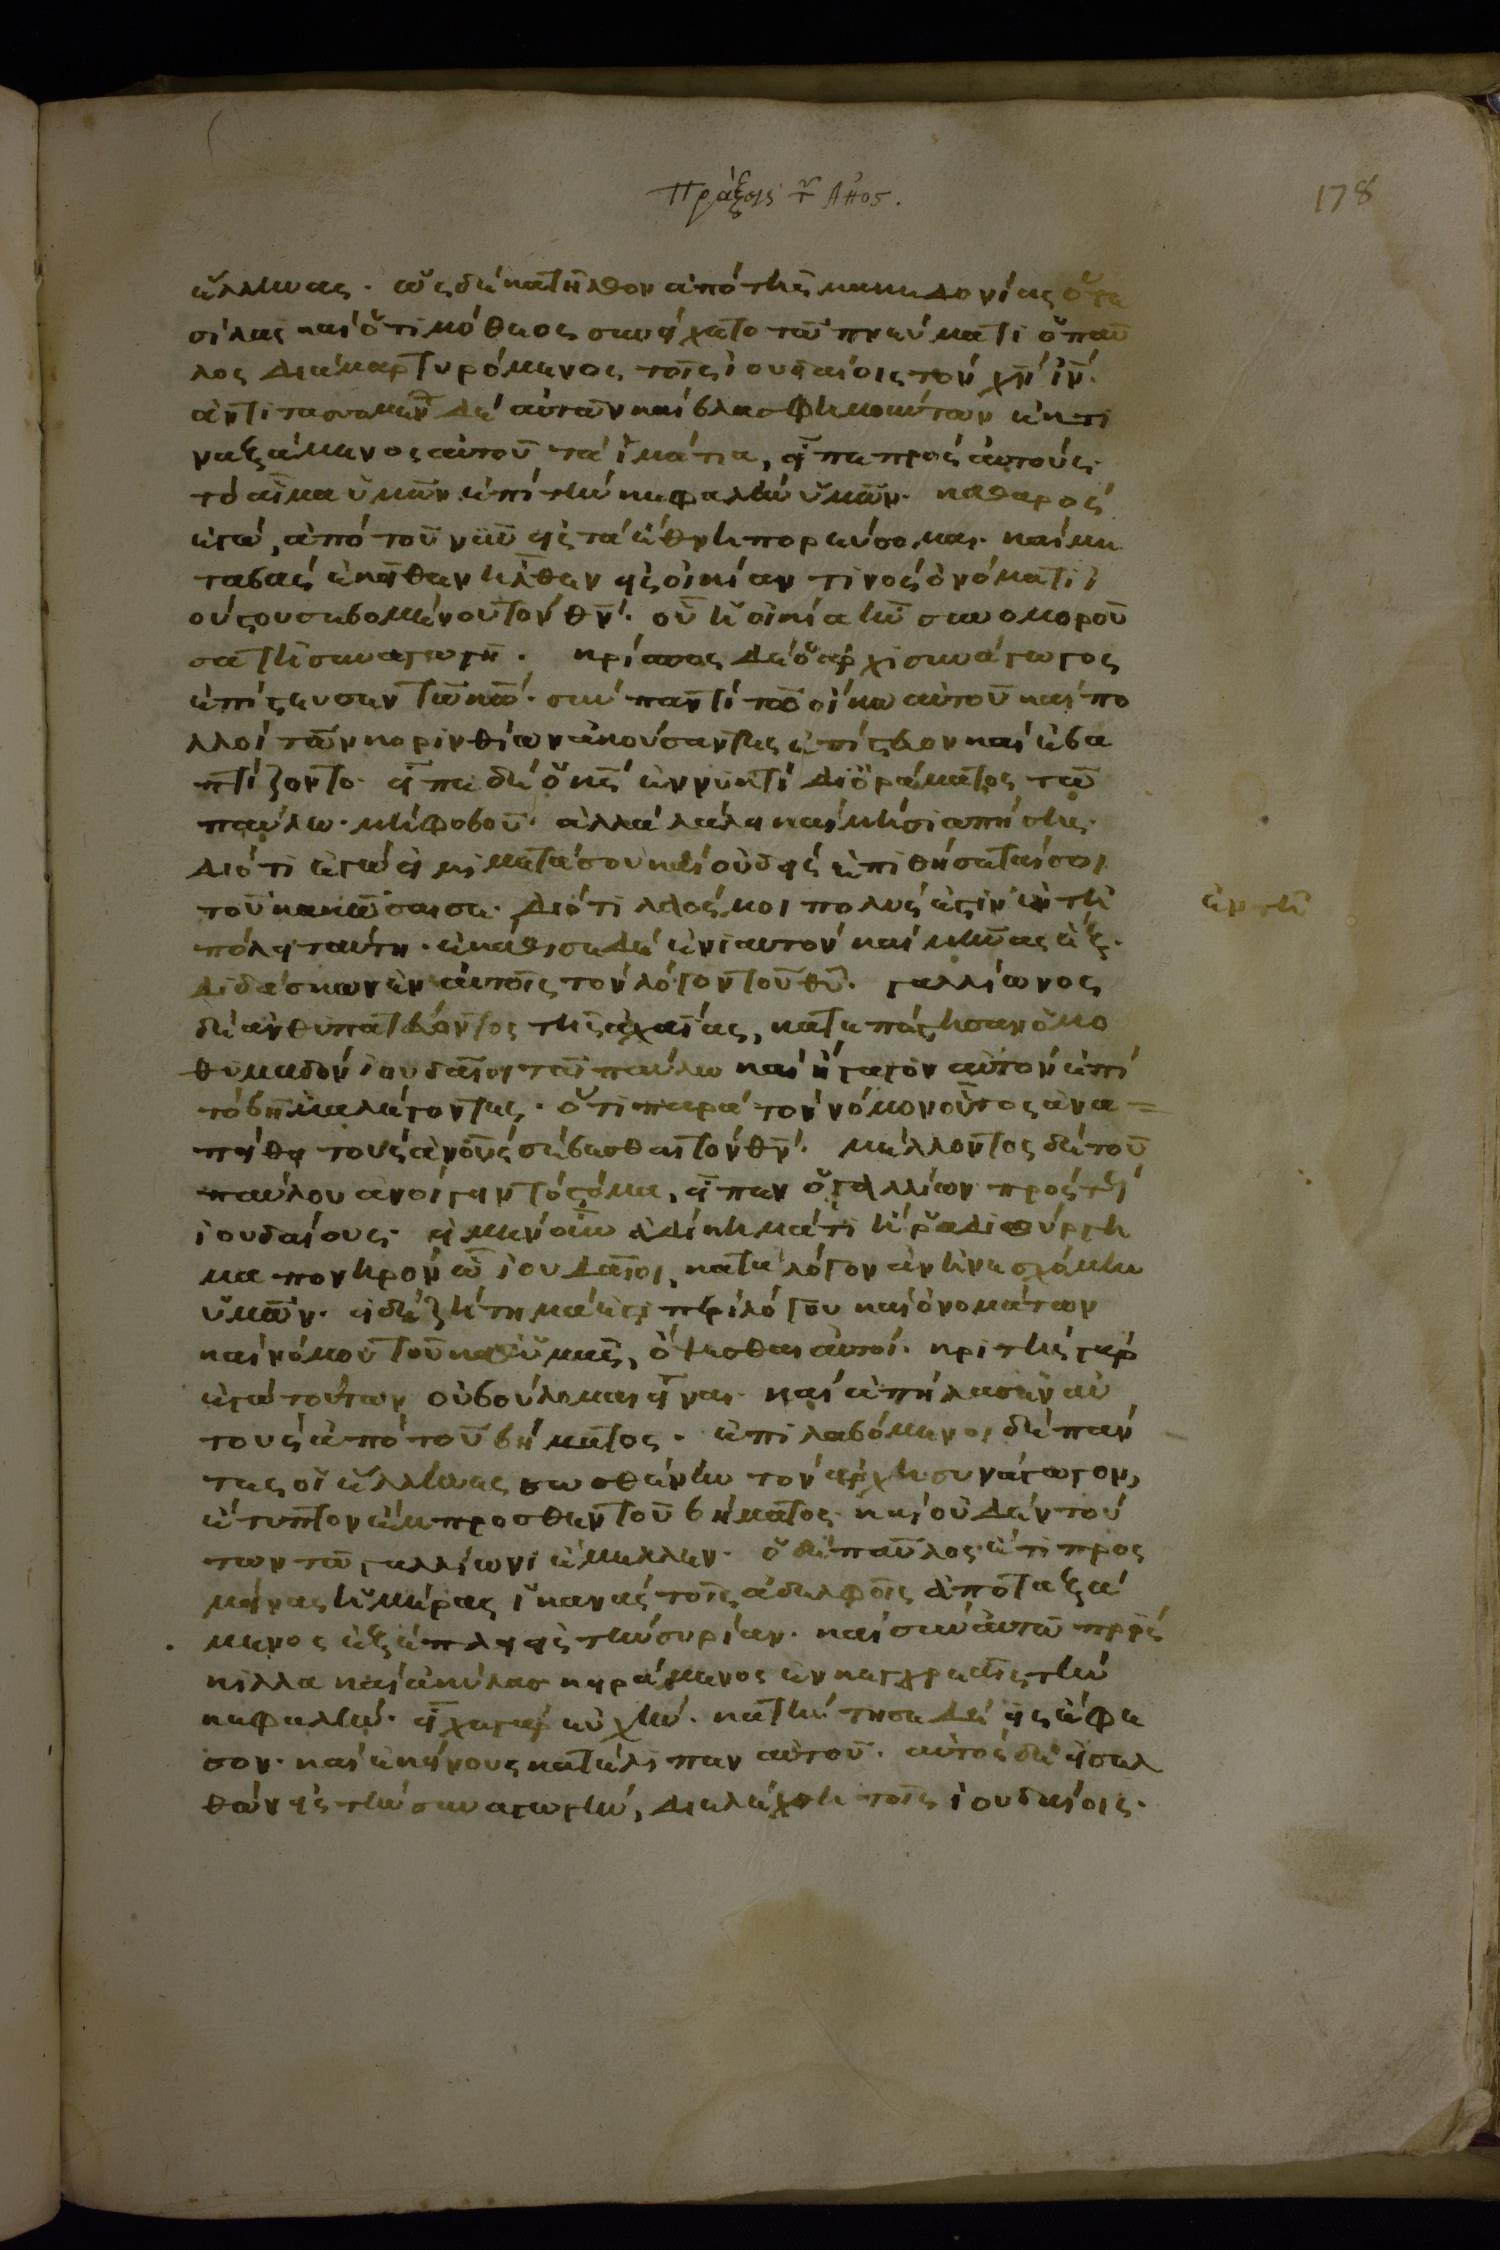 Πράξεις τ Απος.
178
ἕλληνας. ὡς δὲ κατῆλθον ἀπὸ τῆς μακεδονίας ὅ τε
σίλας καὶ ὁ τιμόθεος συνείχετο τῶ πνεύματι ὁ παῦ
λος διαμαρτυρόμενος τοῖς ἰουδαίοις τὸν χν ιν.
ἀντιτασσομένων δὲ αὐτῶν καὶ βλασφημούντων ἐκτι
ναξάμενος αὐτοῦ τὰ ἱμάτια, εἶπε πρὸς αὐτούς.
τὸ αἷμα ὑμῶν ἐπὶ τὴν κεφαλὴν ὑμῶν. καθαρὸς
ἐγώ, ἀπὸ τοῦ νῦν εἰς τὰ ἔθνη πορεύσομαι. καὶ με
ταβὰς ἐκεῖθεν ἦλθεν εἰς οἰκίαν τινὸς ὀνόματι ἰ
ούστου σεβομένου τὸν θν. οὗ ἡ οἰκία ἦν συνομοροῦ
σα τῆ συναγωγῆ. κρίσπος δὲ ὁ ἀρχισυνάγωγος
ἐπίστευσεν τῶ κω. σὺν παντὶ τῶ οἴκω αὐτοῦ καὶ πο
λλοὶ τῶν κορινθίων ἀκούσαντες ἐπίστευον καὶ ἐβα
πτίζοντο. εἶπε δὲ ὁ κς ἐν νυκτὶ δι ὁράματος τῶ
παύλω. μὴ φοβοῦ. ἀλλὰ λάλει καὶ μὴ σιωπήσης.
διότι ἐγώ εἰμι μετὰ σοῦ καὶ οὐδεὶς ἐπιθήσεταί σοι
τοῦ κακῶσαι σε. διότι λαός μοι πολὺς ἐστὶν ἐν τῆ
ἐν τῆ
πόλει ταύτη. ἐκάθισε δὲ ἐνιαυτὸν καὶ μῆνας ἕξ.
διδάσκων ἐν αὐτοῖς τὸν λόγον τοῦ θυ. γαλλίωνος
δὲ ἀνθυπατεύοντος τῆς ἀχαΐας, κατεπέστησαν ὁμο
θυμαδὸν ἰουδαῖοι τῶ παύλω καὶ ἤγαγον αὐτὸν ἐπὶ
τὸ βῆμα λέγοντες. ὅτι παρὰ τὸν νόμον οὗτος ἀνα
πείθει τοὺς ἀνους σέβεσθαι τὸν θν. μέλλοντος δὲ τοῦ
παύλου ἀνοίγειν τὸ στόμα, εἶπεν ὁ γαλλίων πρὸς τοὺς
ἰουδαίους. εἰ μὲν οὖν ἀδίκημά τι ἢ ῥαδιούργη
μα πονηρὸν ὦ ἰουδαῖοι, κατὰ λόγον ἂν ἠνεσχόμην
ὑμῶν. εἰ δὲ ζήτημά ἐστι περὶ λόγου καὶ ὀνομάτων
καὶ νόμου τοῦ καθ ὑμᾶς, ὄψεσθαι αὐτοί. κριτὴς γὰρ
ἐγὼ τούτων οὐ βούλομαι εἶναι. καὶ ἀπήλασεν αὐ
τοὺς ἀπὸ τοῦ βήματος. ἐπιλαβόμενοι δὲ πάν
τες οἱ ἕλληνες σωσθένην τὸν ἀρχησυνάγωγον,
ἔτυπτον ἔμπροσθεν τοῦ βήματος. καὶ οὐδὲν τού
των τῶ γαλλίωνι ἔμελλεν. ὁ δὲ παῦλος ἔτι προς
μείνας ἡμέρας ἱκανὰς τοῖς ἀδελφοῖς ἀποταξά
μενος ἐξέπλει εἰς τὴν συρίαν. καὶ σὺν αὐτῶ πρίς
κιλλα καὶ ἀκύλας κειράμενος ἐν κεγχρεαῖς τὴν
κεφαλήν. εἶχε γὰρ εὐχήν. κατήντησε δὲ εἰς ἔφε
σον. καὶ ἐκείνους κατέλιπεν αὐτοῦ. αὐτὸς δὲ εἰσελ
θὼν εἰς τὴν συναγωγήν, διελέχθη τοῖς ἰουδαίοις.